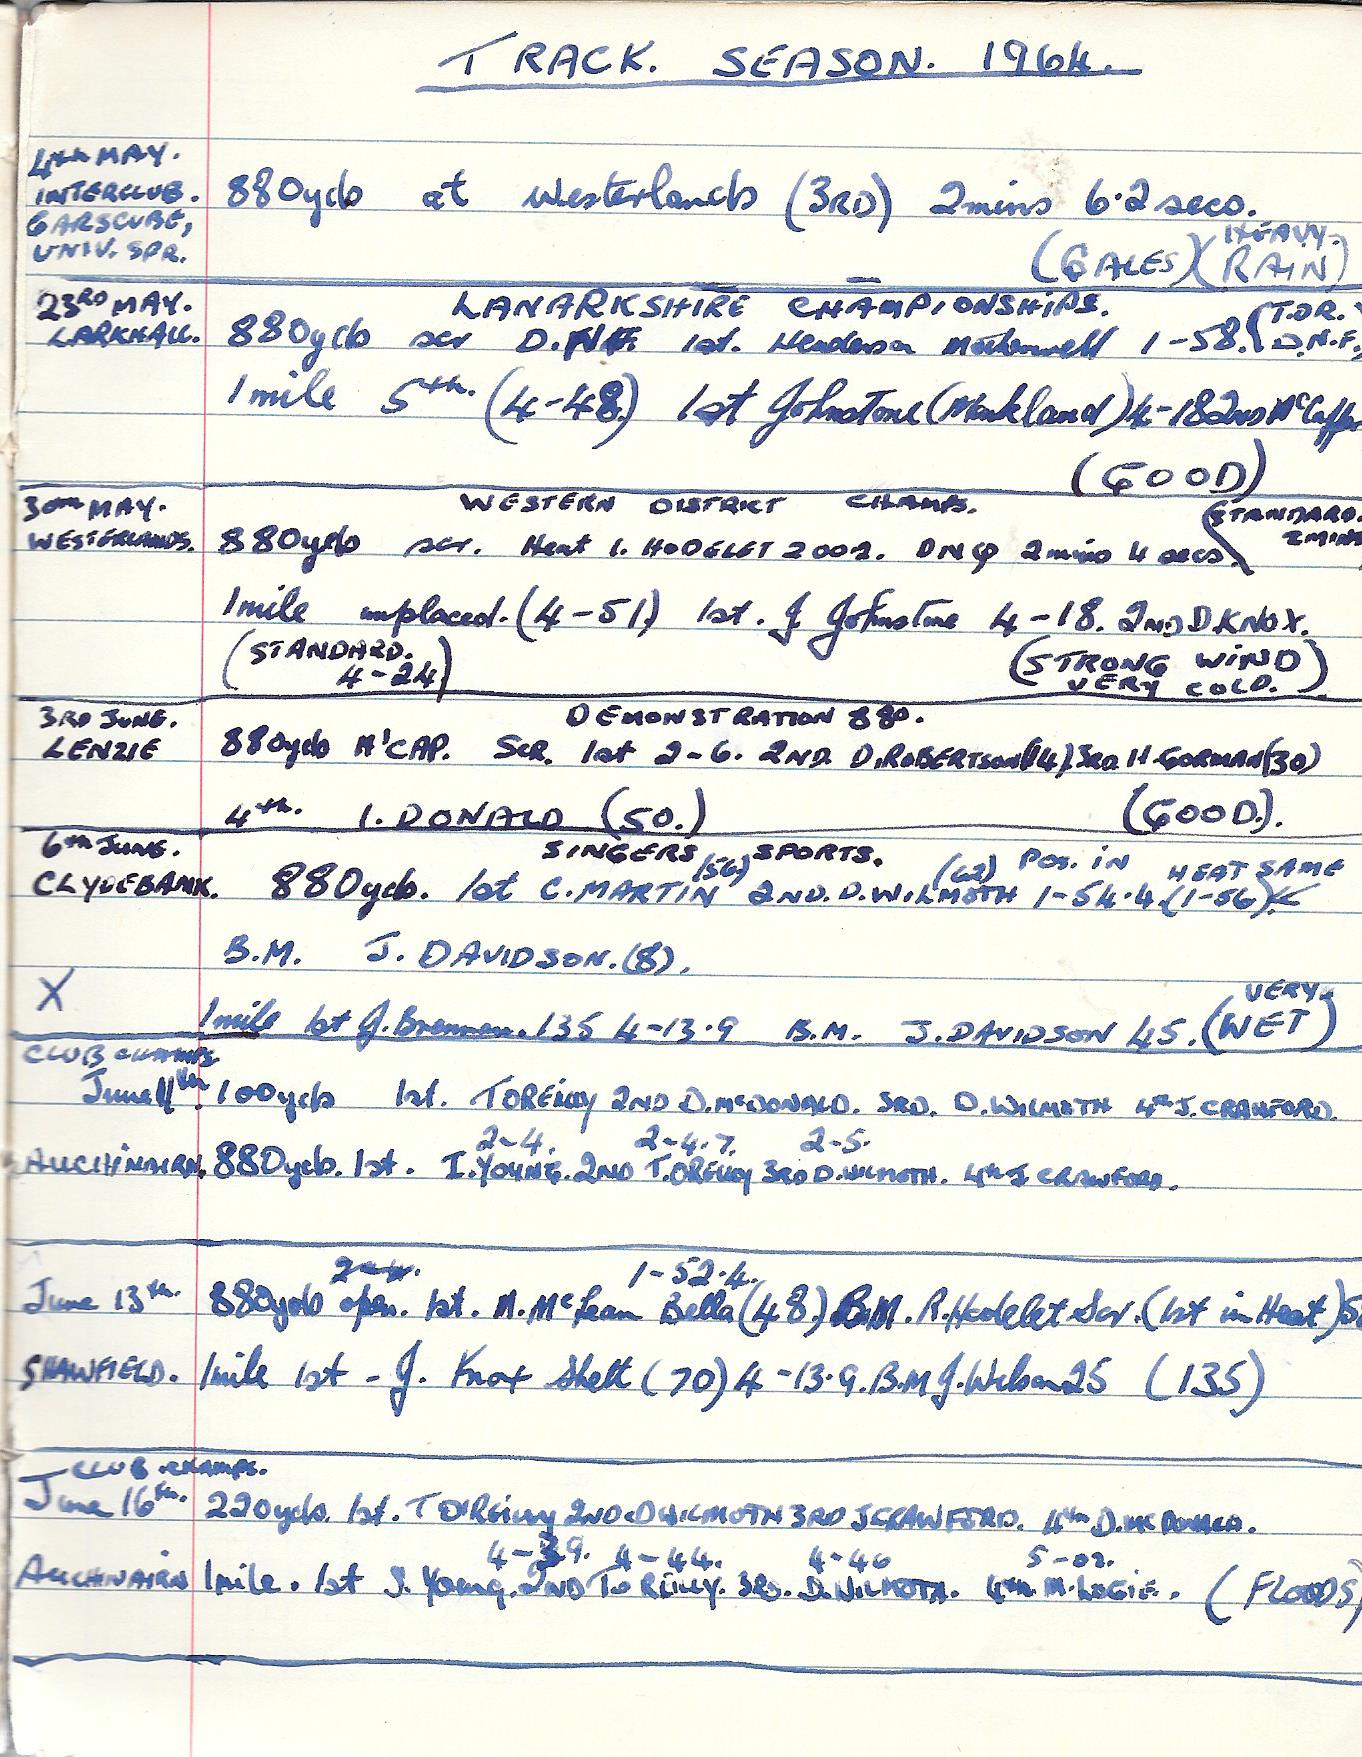 TRACK. SEASON. 1964.
4TH MAY.
INTERCLUB.
GARSCUBE,
UNIV. SPR.
880yds at Westerlands (3RD) 2mins 6.2 secs.
(GALES) (HEAVY. RAIN)
23RD MAY.
LARKHALL.
LANARKSHIRE CHAMPIONSHIPS.
880yds scr D.N.F. 1st. Henderson Motherwell 1-58. (T.DR.
D.N.F.
1 mile 5th. (4-48.) 1st Johnstone (Monkland) 4-18 2ND
(GOOD)
30TH MAY.
WESTERLANDS.
WESTERN DISTRICT CHAMPS.
880yds scr. Heat 1. HODELET 2002. DNQ 2 mins 4 secs. (STANDARD.
2 MINS
1 mile unplaced. (4-51) 1st. J Johnstone 4-18. 2ND D.KNOX.
(STANDARD. 4-24)
(STRONG WIND
VERY COLD.)
3RD JUNE.
LENZIE
DEMONSTRATION 880.
880yds H'CAP. Scr. 1st 2-6. 2ND. D.ROBERTSON (14) 3RD. H.GORMAN (30)
4th. I. DONALD (50.) (GOOD).
6TH JUNE.
CLYDEBANK.
SINGERS SPORTS.
880yds. 1st C. MARTIN (56) 2ND. D.WILMOTH (62) 1-54.4. (1-56) POS. IN HEAT SAME
B.M. J. DAVIDSON. (8).
X
1 mile 1st J. Brennan. 135 4-13.9 B.M. J. DAVIDSON 45. (VERY WET)
CLUB CHAMPS
June 11th.
100yds 1st. T OREILLY 2ND D.McDONALD. 3RD. D.WILMOTH 4TH J.CRAWFORD.
2-4. 2-4.7. 2-5.
AUCHINAIRN. 880yds. 1st. I.YOUNG. 2ND T.OREILLY 3RD D.WILMOTH. 4TH J CRAWFORD.
1-52.4.
June 13th. 880yds open. 1st. M. McLean Bella (48.) B.M. R.Hodelet Scr. (1st in Heat)
SHAWFIELD. 1 mile 1st - J. Knox Shett (70) 4-13.9. B.M J.Wilson 25 (135)
CLUB CHAMPS.
June 16th. 220yds. 1st. T OREILLY 2ND. D WILMOTH 3RD J CRAWFORD. 4TH D.McDONALD.
4-39. 4-44. 4-46 5-02.
AUCHINAIRN 1 mile. 1st I. Young. 2ND T O REILLY. 3RD. D.WILMOTH. 4TH. M.LOGIE. (FLOODS)